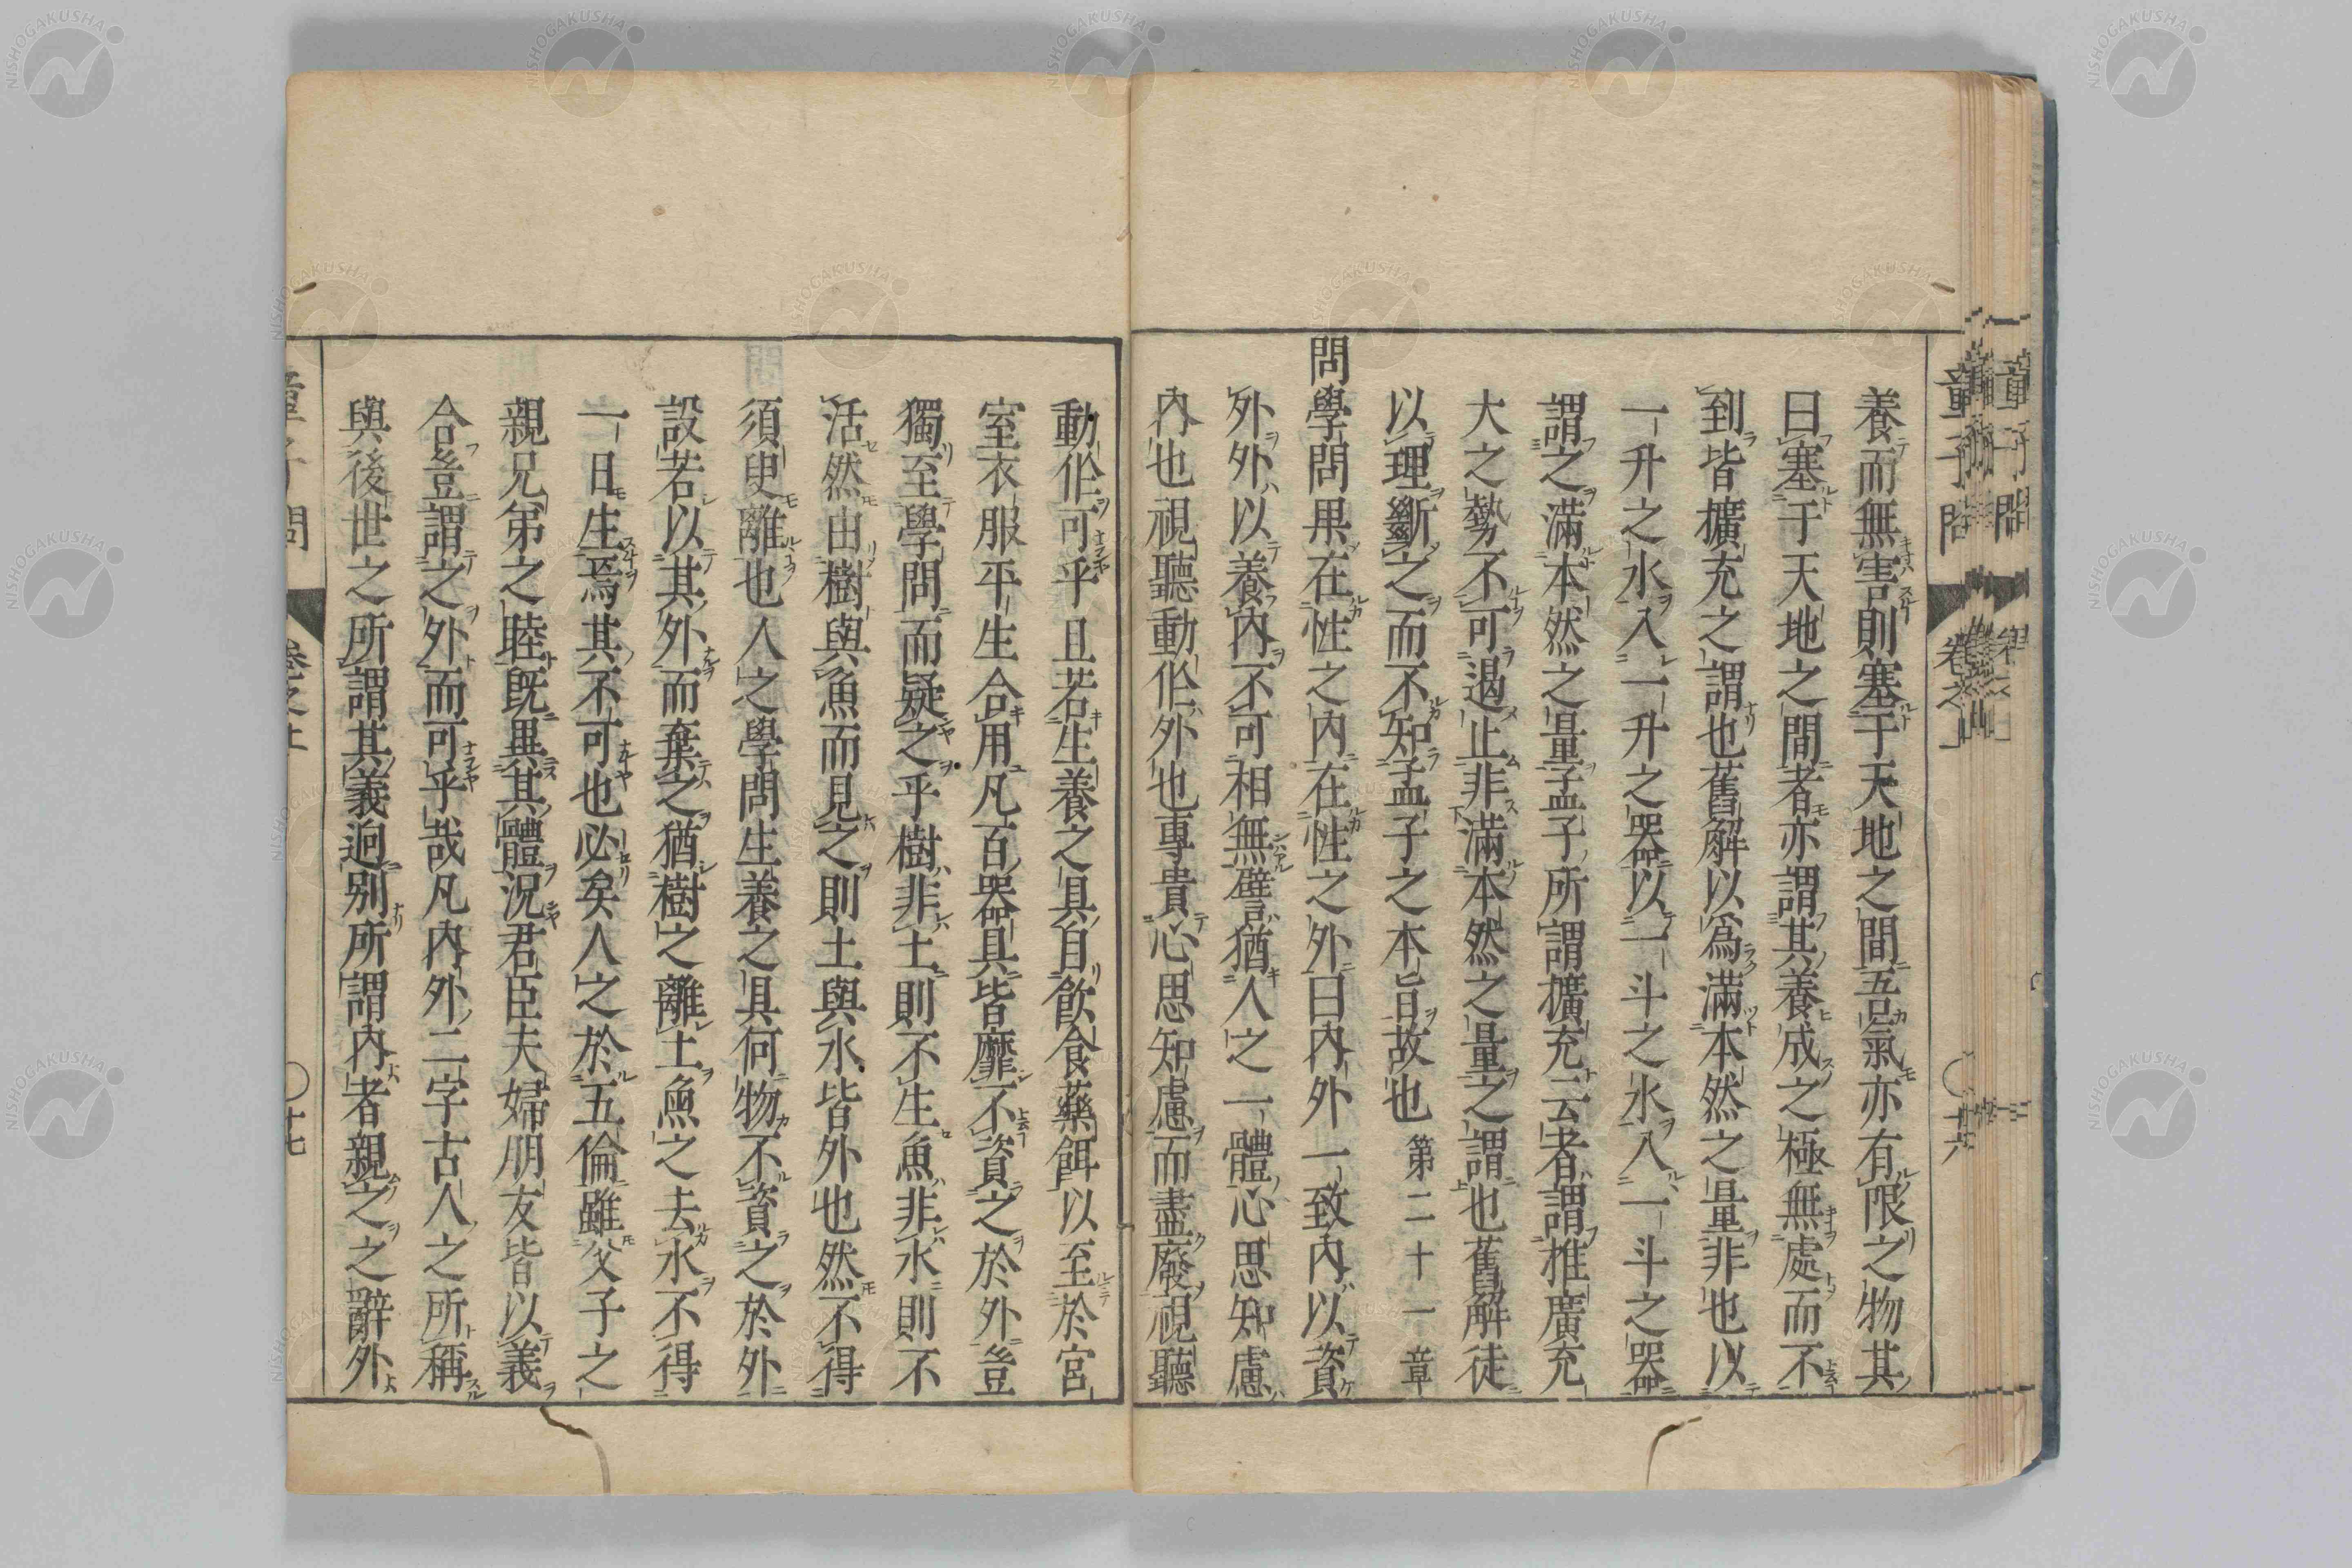 養而無害則塞于天地之間吾氣亦有限之物其
曰塞于天地之間者亦謂其養成之極無處而不
到皆擴充之謂也舊解以爲滿本然之量非也以
一升之水入一升之器以一斗之水入一斗之器
謂之滿本然之量孟子所謂擴充云者謂推廣充
大之勢不可遏止非滿本然之量之謂也舊解徒
以理斷之而不知孟子之本旨故也 第二十一章
問學問果在性之內在性之外曰內外一致內以資
外外以養內不可相無譬猶人之一體心思知慮
內也視聽動作外也專貴心思知慮而盡廢視聽
童子問 卷之上 十六
動作可乎且若生養之具自飮食藥餌以至於宮
室衣服平生合用凡百器具皆靡不資之於外豈
獨至學問而疑之乎樹非土則不生魚非水則不
活然由樹與魚而見之則土與水皆外也然不得
須臾離也人之學問生養之具何物不資之於外
設若以其外而棄之猶樹之離土魚之去水不得
一日生焉其不可也必矣人之於五倫雖父子之
親兄弟之睦旣異其體況君臣夫婦朋友皆以義
合豈謂之外而可乎哉凡內外二字古人之所稱
與後世之所謂其義逈別所謂內者親之之辭外
童子問 卷之上 十七
NISHOGAKUSHA